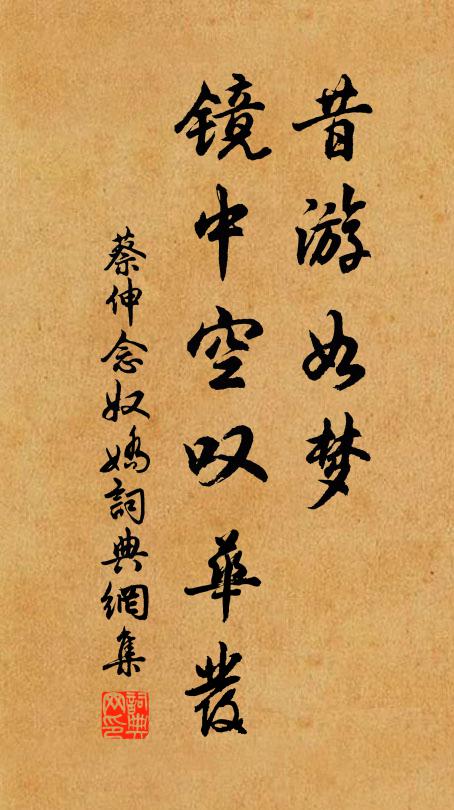 昔游如梦
镜中空叹华发
蔡伸念奴娇詞典網集
詞典网印